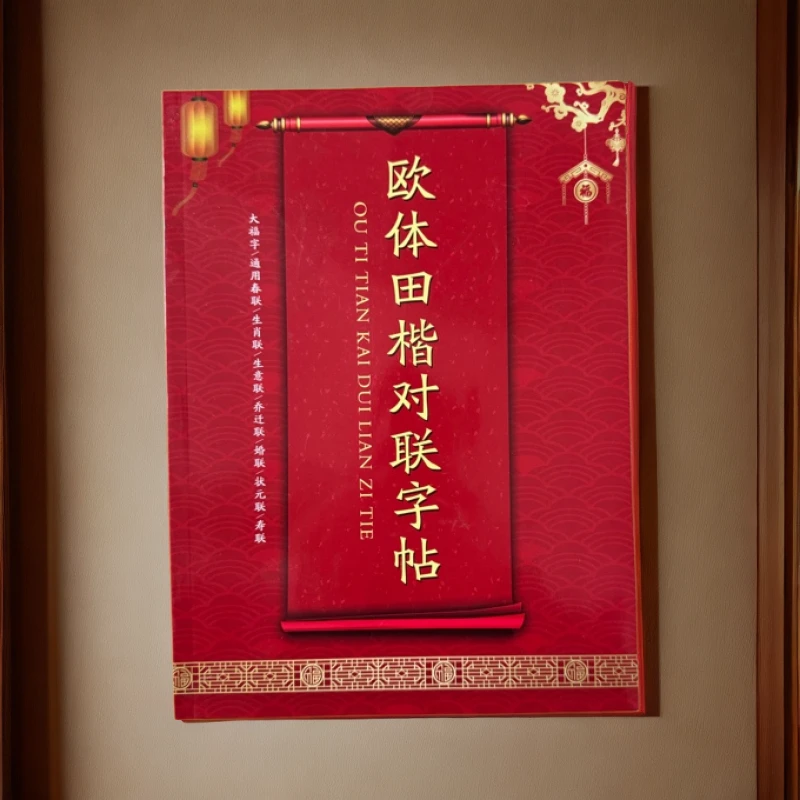 欧体田楷对联字帖
OU TI TIAN KAI DUI LIAN ZI TIE
大福字/通用春联/生肖联/生意联/乔迁联/婚联/状元联/寿联
福
福 福 福 福